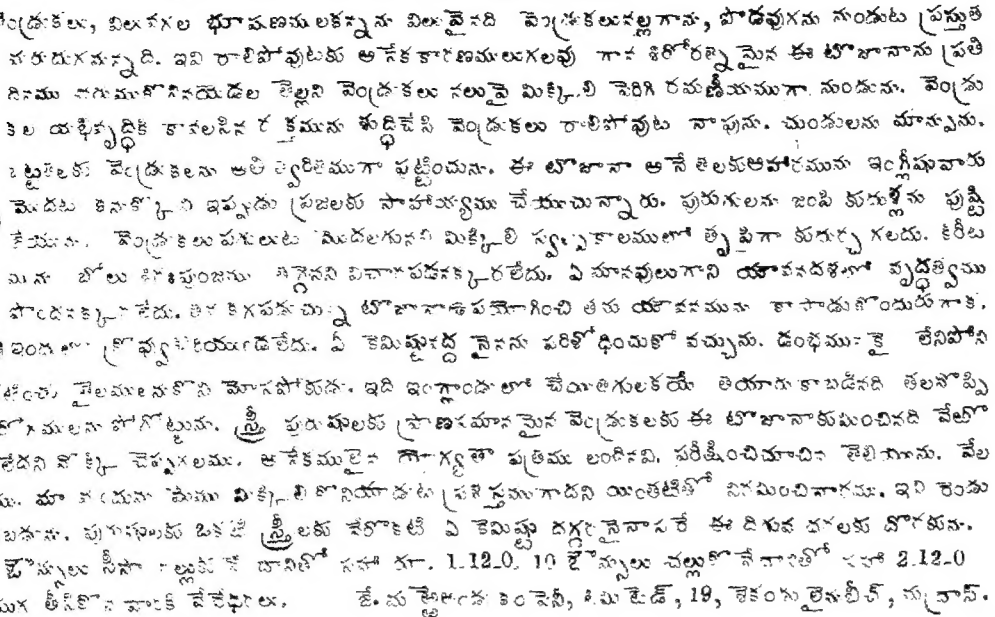 వెండ్రుకలు, విలువగల భూషణములకన్నను విలువైనది వెండ్రుకలునల్లగాను, పొడవుగను నుండుట ప్రస్తుత
ఇవి రాలిపోవుటకు అనేకకారణములుగలవు గాన శిరోరత్నమైన ఈ టొజానాను ప్రతి
దినము తెల్లని వెండ్రుకలు నలుపై మిక్కిలి పెరిగి రమణీయముగా నుండును. వెండ్రు
కల యభివృద్ధికి కావలసిన రక్తమును శుద్ధిచేసి వెండ్రుకలు రాలిపోవుట నాపును. చుండులను మాన్పును.
బట్టతలకు వెండ్రుకలను అతి త్వరితముగా పుట్టించును. ఈ టొజానా అనే తలకుఆహారమును ఇంగ్లీషువారు
మొదట కనుక్కొని ఇప్పుడు ప్రజలకు సాహాయ్యము చేయుచున్నారు. పురుగులను జంపి కుదుళ్లను పుష్టి
చేయును. వెండ్రుకలు పగులుట మొదలగునవి మిక్కిలి స్వల్పకాలములో తృప్తిగా కుదుర్చ గలదు. కిరీట
మును బోలు విచారపడనక్కరలేదు. ఏ మానవులుగాని యౌవనదశలో వృద్ధత్వము
పొందనక్కరలేదు. టొజానాఉపయోగించి తమ యౌవనమును కాపాడుకొందురుగాక.
ఇందులో క్రొవ్వు ఏ కెమిష్టువద్ద నైనను పరిశోధించుకో వచ్చును. డంభముకై లేనిపోని
తైలములనుకొని మోసపోకుడు. ఇది ఇంగ్లాండులో చేయితగులకయే తయారు కాబడినది తలనొప్పి
రోగములను పోగొట్టును. స్త్రీ పురుషులకు ప్రాణసమానమైన వెండ్రుకలకు ఈ టొజానాకుమించినది వేరొ
లేదని నొక్కి చెప్పగలము. అనేకములైన యోగ్యతా పత్రిము లందినవి. పరీక్షించిచూచిన తెలియును. వేల
మేము మిక్కిలి కొనియాడుట ప్రశస్తముగాదని యింతటితో విరమించినారము. ఇవి రెండు
పురుషులకు ఒకటి స్త్రీలకు వేరొకటి ఏ కెమిష్టు దగ్గరనైనాసరే ఈ దిగువ ధరలకు దొరకును.
ఔన్సులు సీసా దానితో సహా రూ. 1.12.0. 10 ఔన్సులు చల్లుకొనేదానితో సహా 2.12-0
తీసికొన వారికి వేరేధరలు. జే. కంపెనీ, లిమిటెడ్, 19, శెకండు లైనుబీచ్, మద్రాస్.